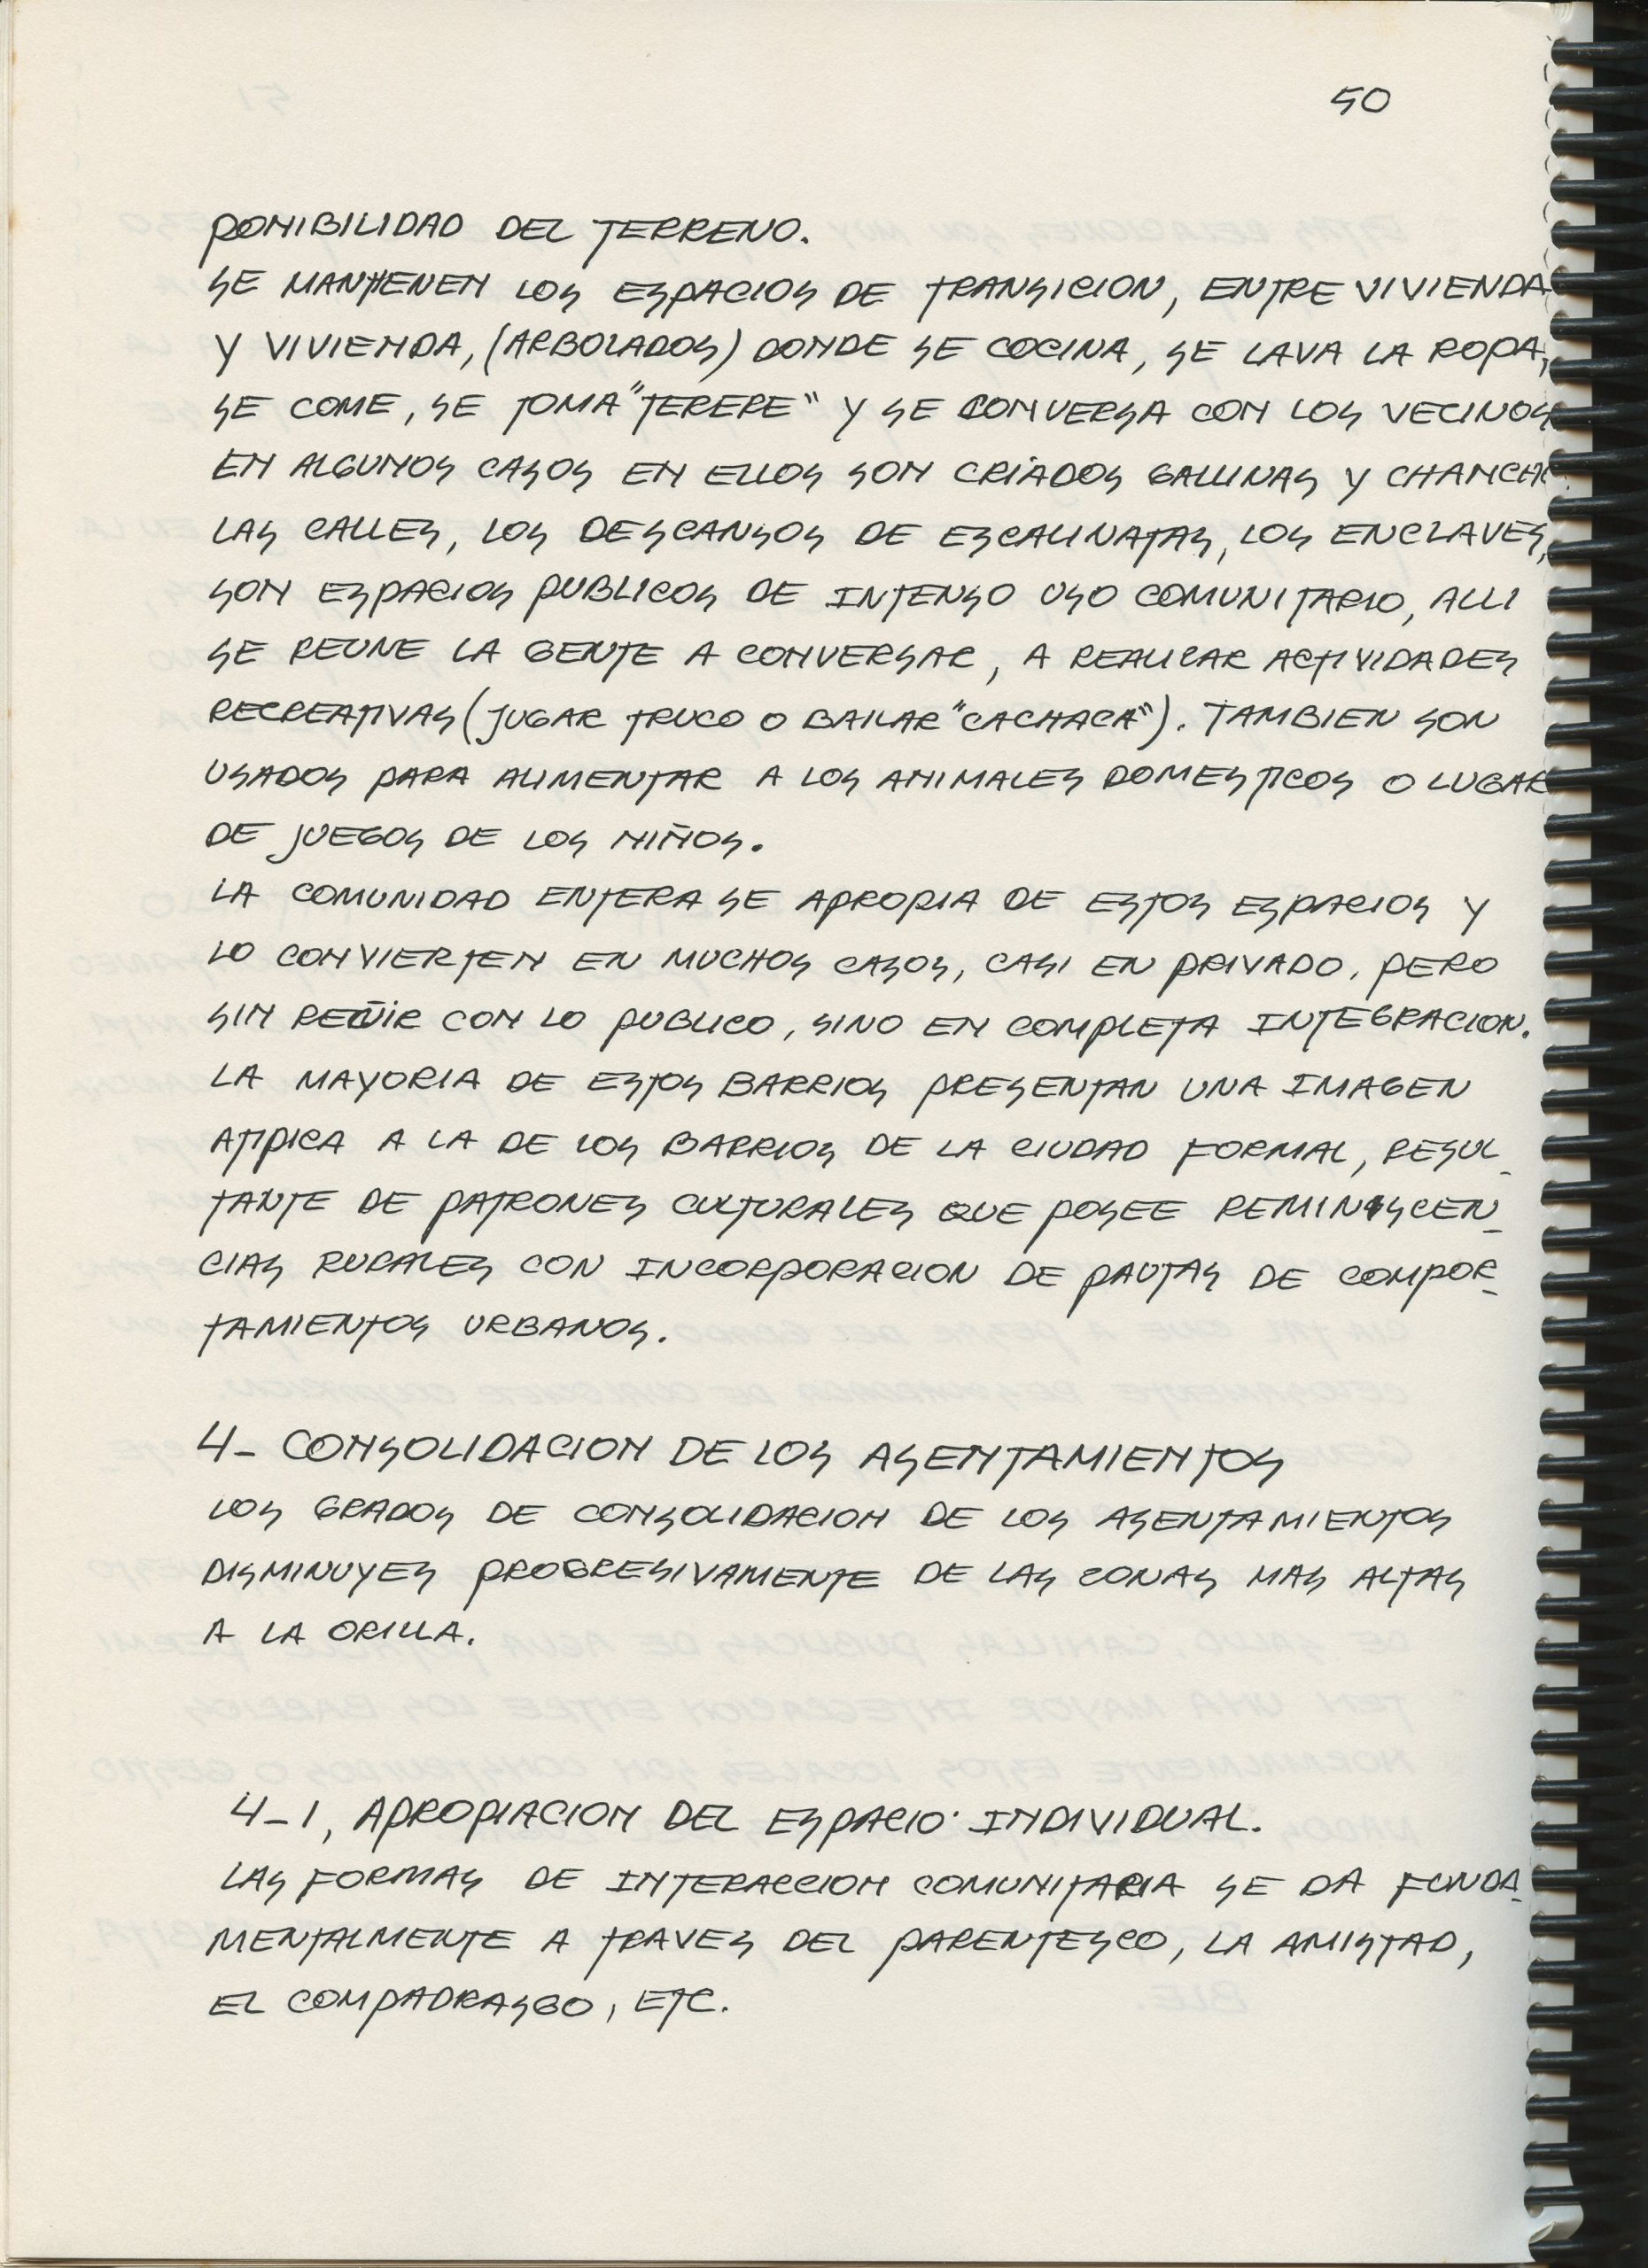 50
PONIBILIDAD DEL TERRENO.
SE MANTIENEN LOS ESPACIOS DE TRANSICION, ENTRE VIVIENDA
Y VIVIENDA, (ARBOLADOS) DONDE SE COCINA, SE LAVA LA ROPA,
SE COME, SE TOMA "TERERE" Y SE CONVERSA CON LOS VECINOS
EN ALGUNOS CASOS EN ELLOS SON CRIADOS GALLINAS Y CHANCHO
LAS CALLES, LOS DESCANSOS DE ESCALINATAS, LOS ENCLAVES,
SON ESPACIOS PUBLICOS DE INTENSO USO COMUNITARIO, ALLI
SE REUNE LA GENTE A CONVERSAR, A REALIZAR ACTIVIDADES
RECREATIVAS (JUGAR TRUCO O BAILAR "CACHACA"). TAMBIEN SON
USADOS PARA ALIMENTAR A LOS ANIMALES DOMESTICOS O LUGAR
DE JUEGOS DE LOS NIÑOS.
LA COMUNIDAD ENTERA SE APROPIA DE ESTOS ESPACIOS Y
LO CONVIERTEN EN MUCHOS CASOS, CASI EN PRIVADO, PERO
SIN REÑIR CON LO PUBLICO, SINO EN COMPLETA INTEGRACION.
LA MAYORIA DE ESTOS BARRIOS PRESENTAN UNA IMAGEN
ATIPICA A LA DE LOS BARRIOS DE LA CIUDAD FORMAL, RESUL_
TANTE DE PATRONES CULTURALES QUE POSEE REMINISCEN_
CIAS RURALES CON INCORPORACION DE PAUTAS DE COMPOR_
TAMIENTOS URBANOS.
4- CONSOLIDACION DE LOS ASENTAMIENTOS
LOS GRADOS DE CONSOLIDACION DE LOS ASENTAMIENTOS
DISMINUYES PROGRESIVAMENTE DE LAS ZONAS MAS ALTAS
A LA ORILLA.
4-1, APROPIACION DEL ESPACIO INDIVIDUAL.
LAS FORMAS DE INTERACCION COMUNITARIA SE DA FUNDA_
MENTALMENTE A TRAVES DEL PARENTESCO, LA AMISTAD,
EL COMPADRASGO, ETC.